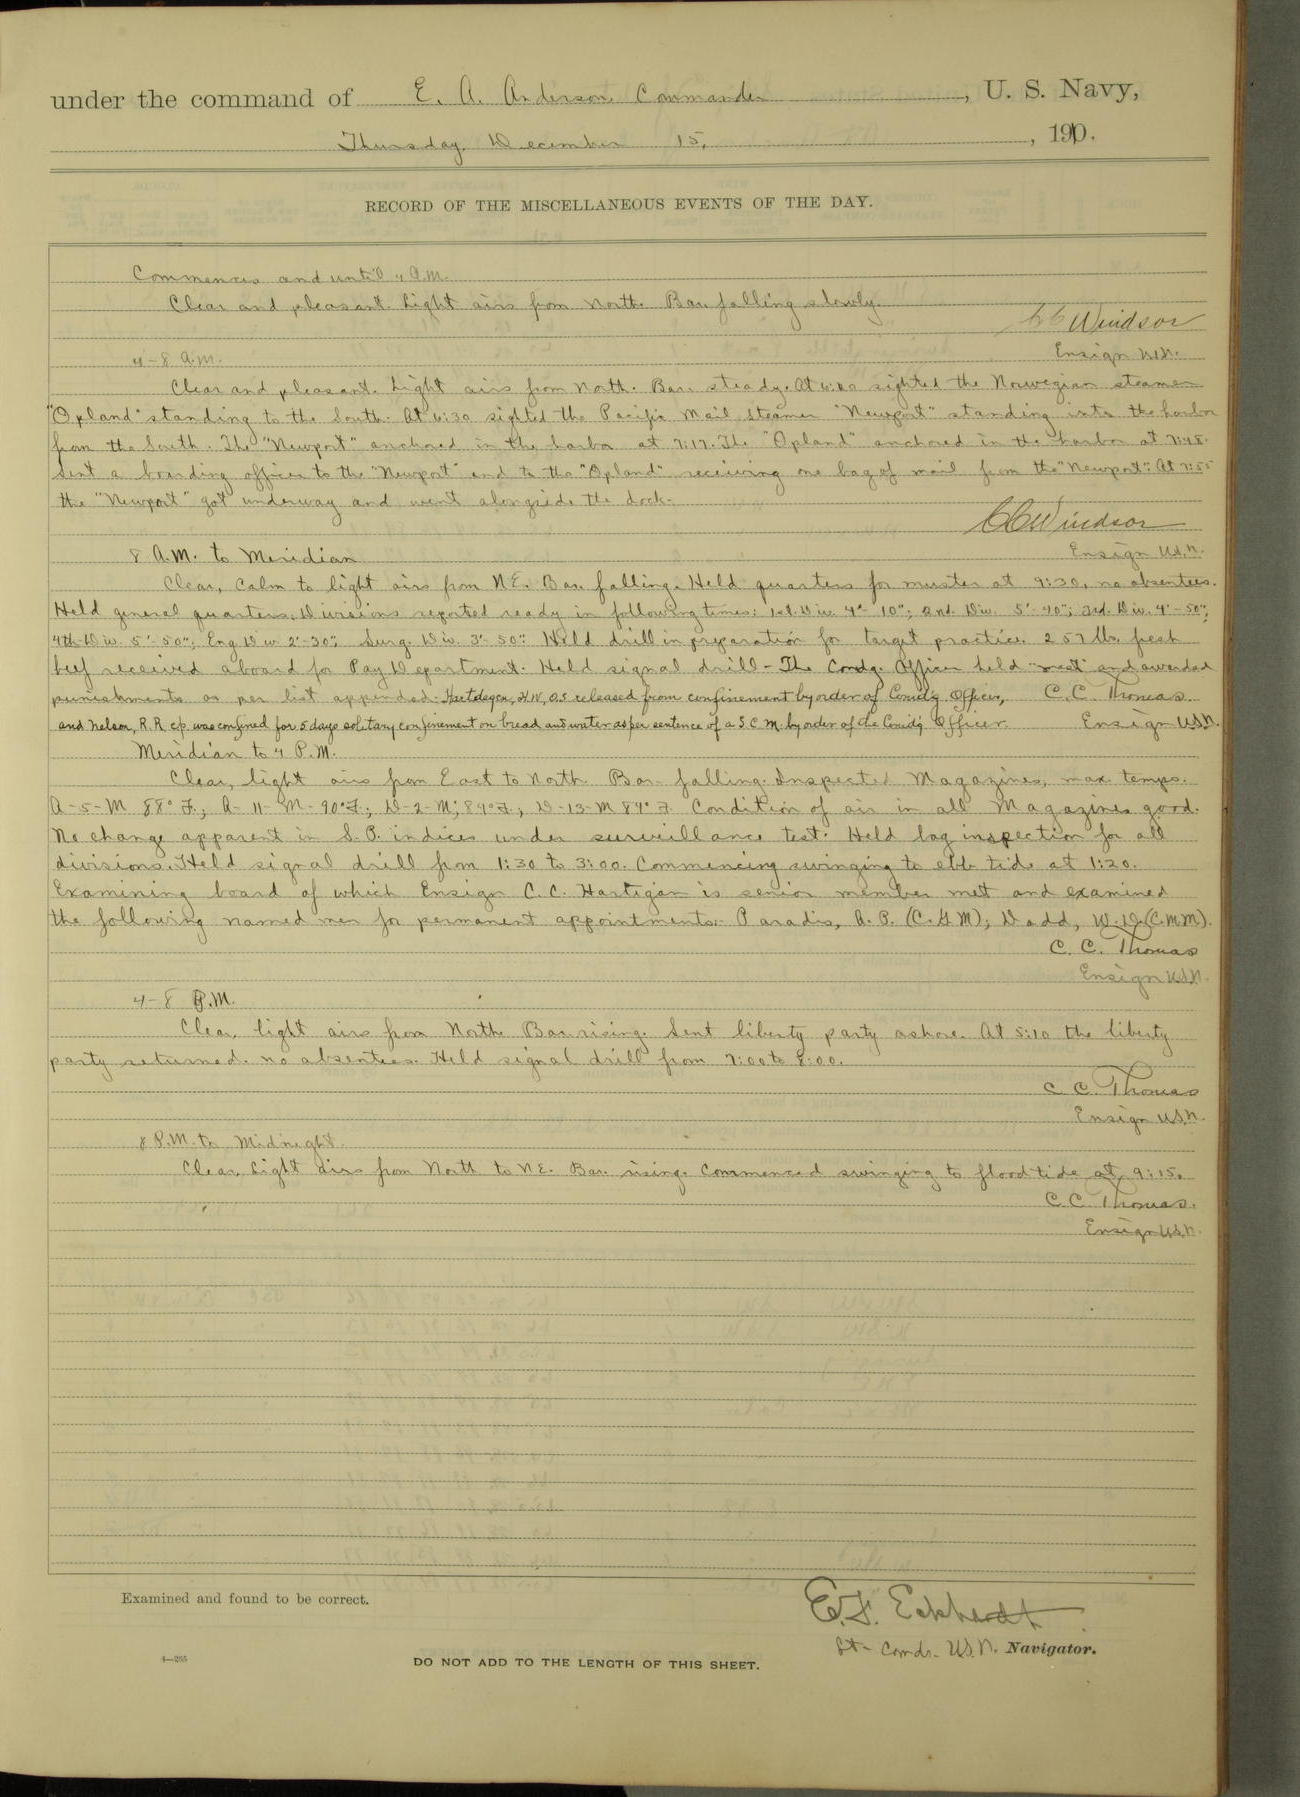 under the command of E. A. Anderson, Commander, U. S. Navy,
Thursday, December 15, 1910.
RECORD OF THE MISCELLANEOUS EVENTS OF THE DAY.
Commences and until 4 A.M.
Clear and pleasant. Light airs from North. Bar. falling slowly.
CC Windsor
Ensign U.S.N.
4-8 A.M.
Clear and pleasant. Light airs from North. Bar. steady. At sighted the Norwegian steamer
"Opland" standing to the South. At 6:30 sighted the Pacific Mail Steamer "Newport" standing into the harbor
from the South. The "Newport" anchored in the harbor at 7:17. The "Opland" anchored in the harbor at 7:48.
Sent a boarding officer to the "Newport" and to the "Opland" receiving one bag of mail from the "Newport". At 7:55
the "Newport" got underway and went alongside the dock.
CC Windsor
Ensign U.S.N.
8 A.M. to Meridian
Clear, Calm to light airs from N.E. Bar. falling. Held quarters for muster at 9:30, no absentees.
Held general quarters. Divisions reported ready in following times: 1st. Div. 4'-10"; 2nd. Div. 5'-40"; 3rd. Div. 4'-50";
4th Div. 5'-50"; Eng. Div. 2'-30"; Surg. Div. 3'-50". Held drill in preparation for target practice. 257 lbs. fresh
beef received aboard for Pay Department. Held signal drill - The Comdg. Officer held "mast" and awarded
punishments as per list appended. Hartdegen, H.W, O.S. released from confinement by order of Comd'g Officer, C.C. Thomas.
and Nelson, R.R. c.p. was confined for 5 days solitary confinement on bread and water as per sentence of a S.C.M. by order of the Comd'g Officer. Ensign U.S.N.
Meridian to 4 P.M.
Clear, light airs from East to North. Bar. falling. Inspected Magazines, max. temps.
A-5-M 88° F.; A-11-M-90° F.; D-2-M; 84° F.; D-13-M 84° F. Condition of air in all Magazines good.
No change apparent in S.P. indices under surveillance test. Held bag inspection for all
divisions. Held signal drill from 1:30 to 3:00. Commencing swinging to ebb tide at 1:20.
Examining board of which Ensign C.C. Hartigan is senior member met and examined
the following named men for permanent appointments:- Paradis, A.P. (C.G.M.); Dadd, W.D. (C.M.M.).
C. C. Thomas
Ensign U.S.N.
4-8 P.M.
Clear, light airs from North. Bar. rising. Sent liberty party ashore. At 5:10 the liberty
party returned. no absentees. Held signal drill from 7:00 to 8:00.
C C. Thomas
Ensign U.S.N.
8 P.M. to Midnight.
Clear, Light airs from North to N.E. Bar. rising. Commenced swinging to flood tide at 9:15.
C.C. Thomas.
Ensign U.S.N.
Examined and found to be correct.
E.F. Eckhardt
Lt- Comdr. U.S.N. Navigator.
4—265
DO NOT ADD TO THE LENGTH OF THIS SHEET.